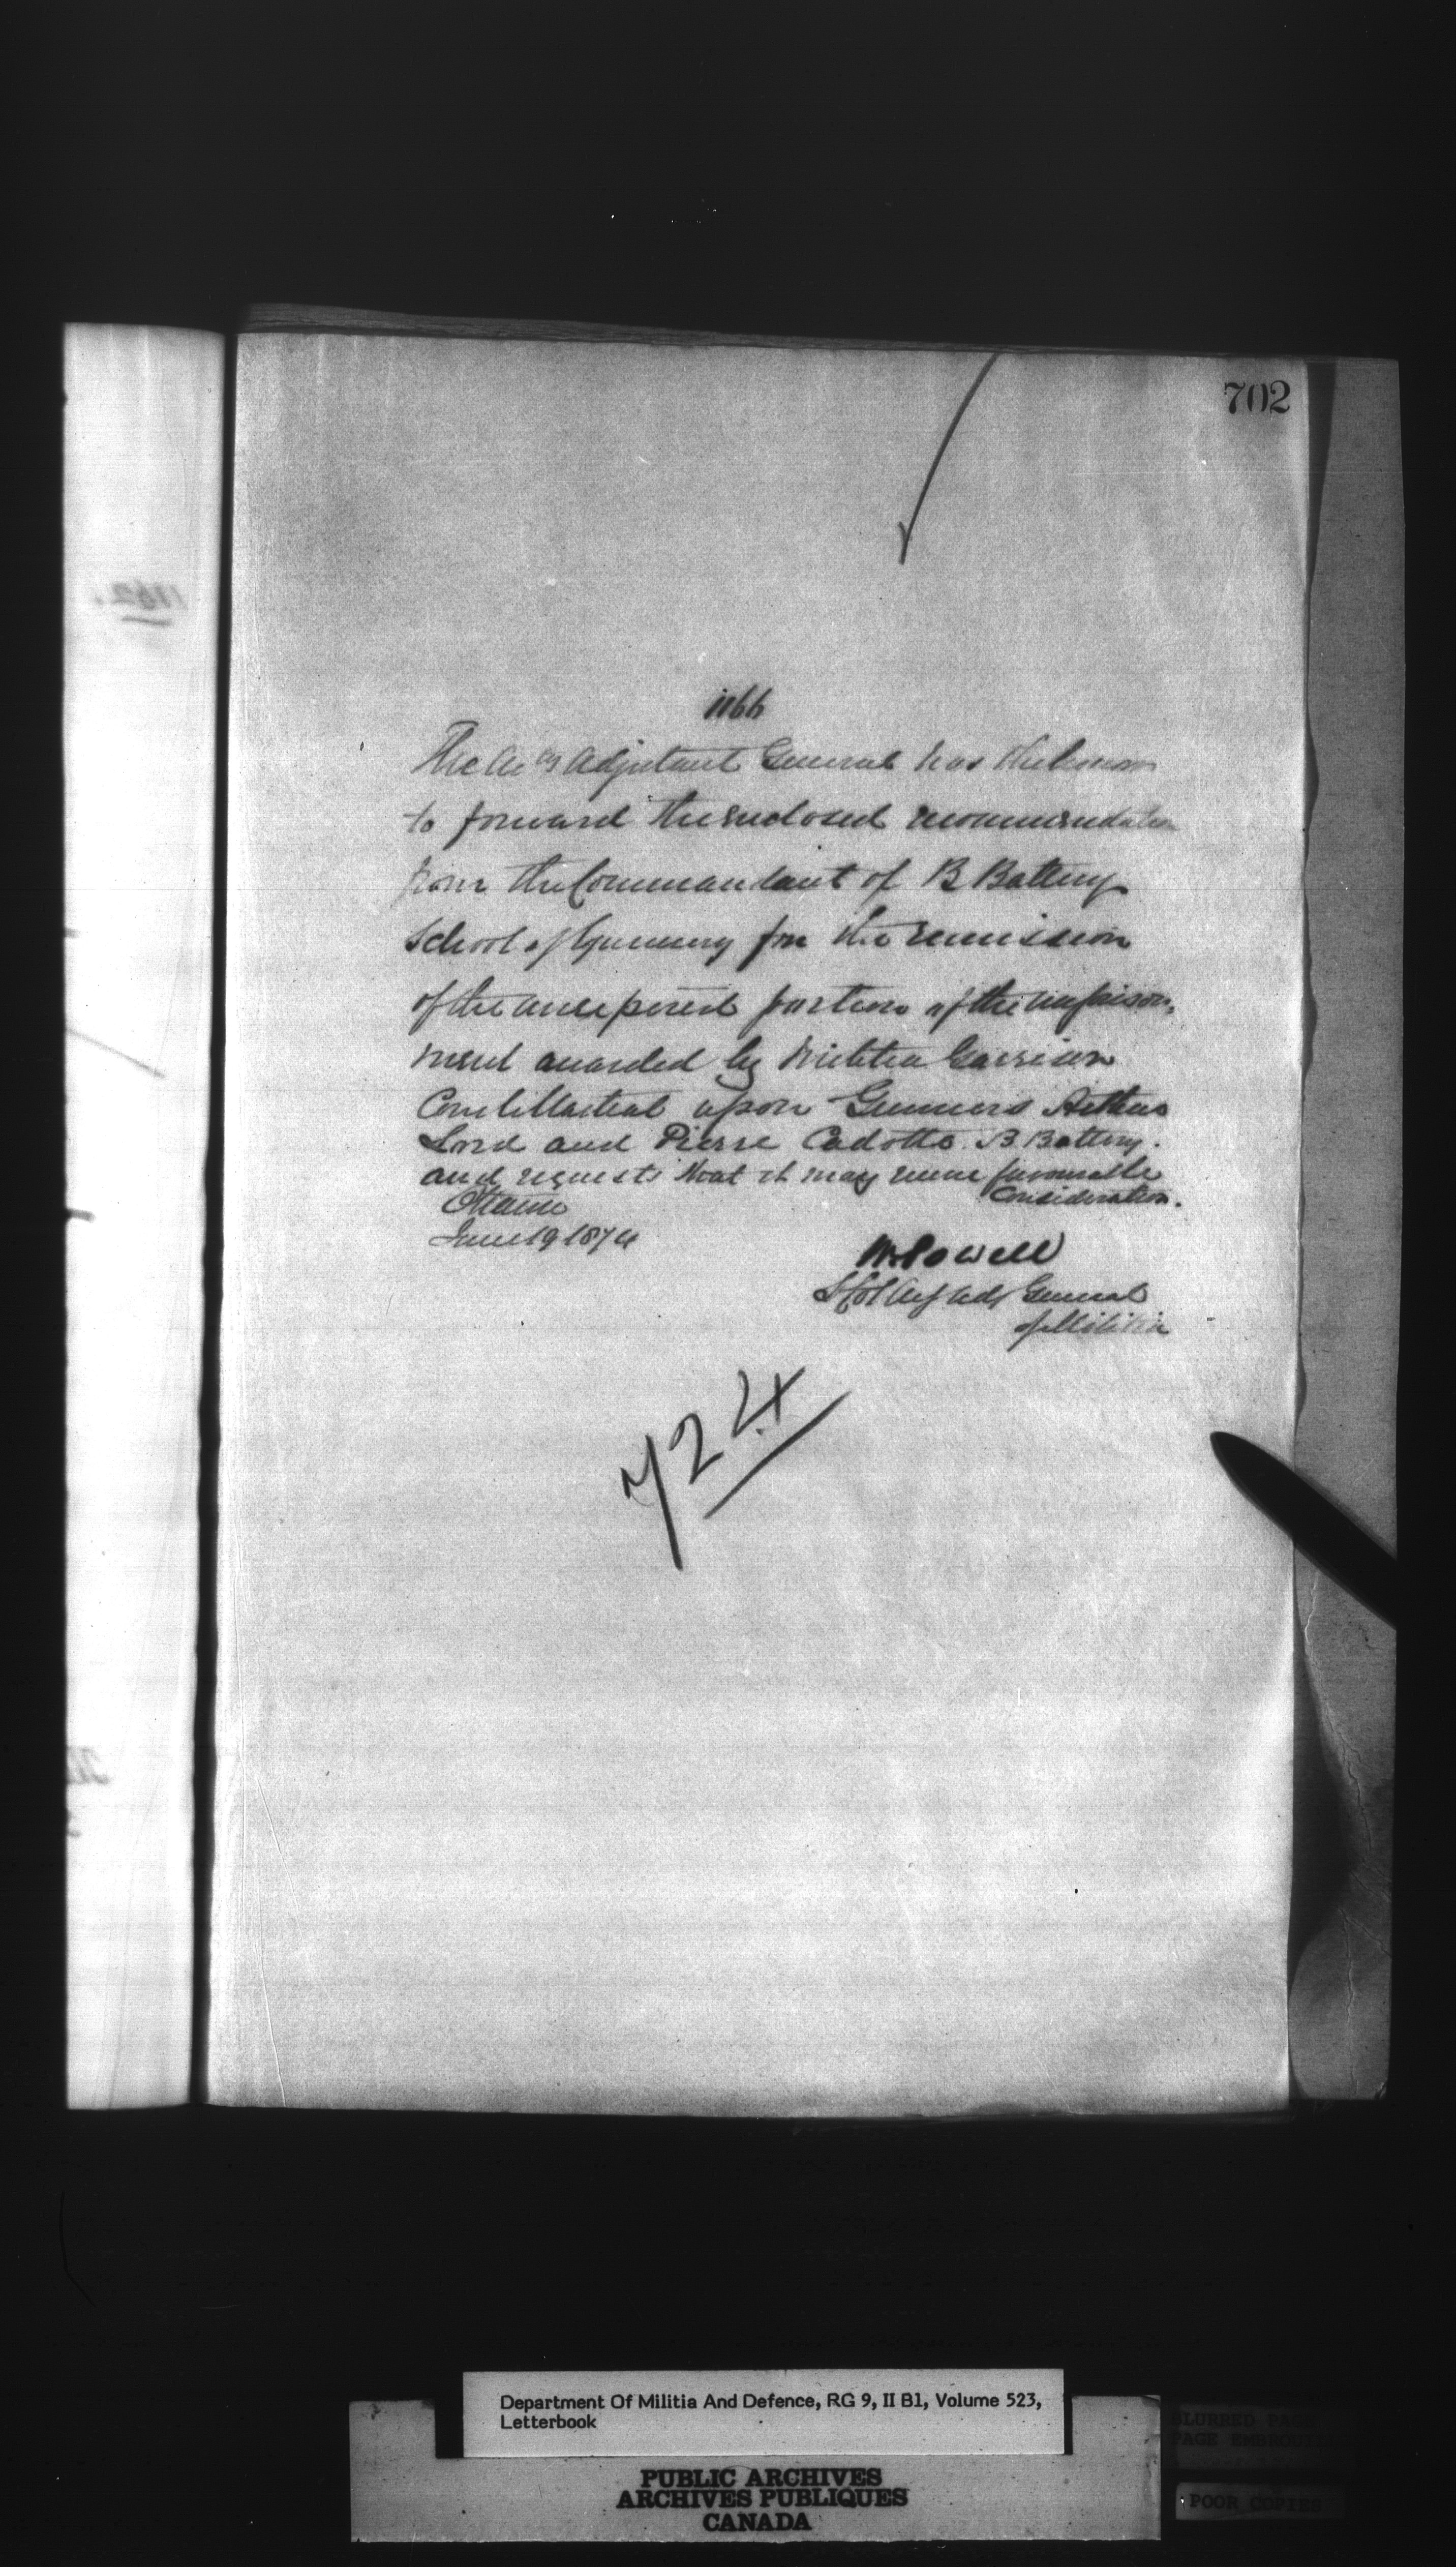 702
1166
The Acg Adjutant General has the honor
to forward the enclosed recommendation
from the Commandant of B Battery
School of Gunnery for the remission
of the unexpired portion of the imprison-
ment awarded by Militia Garrison
Court Martial upon Gunners
Lord and Pierre Cadotte B Battery.
and requests that it may receive favourable
Consideration.
Ottawa
June 19 1874
W Powell
Lt Col Acg Adj General
of Militia
724
Department Of Militia And Defence, RG 9, II B1, Volume 523,
Letterbook
PUBLIC ARCHIVES
ARCHIVES PUBLIQUES
CANADA
BLURRED PAGE
PAGE EMBROUILLEE
POOR COPIES